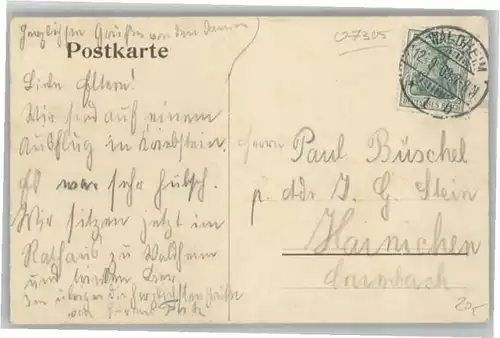 Herzlichen Grüße von den Damen
O-7305
Postkarte
WALDHEIM
Liebe Eltern!
Wir sind auf einem
Ausflug in Kriebstein.
Es war sehr hübsch.
Wir sitzen jetzt im
Rathaus zu Waldheim
und trinken Bier
Im übrigen die herzlichsten Grüße
Herrn Paul Büschel
p. Adr. J. G. Stein
Hainichen
20,-